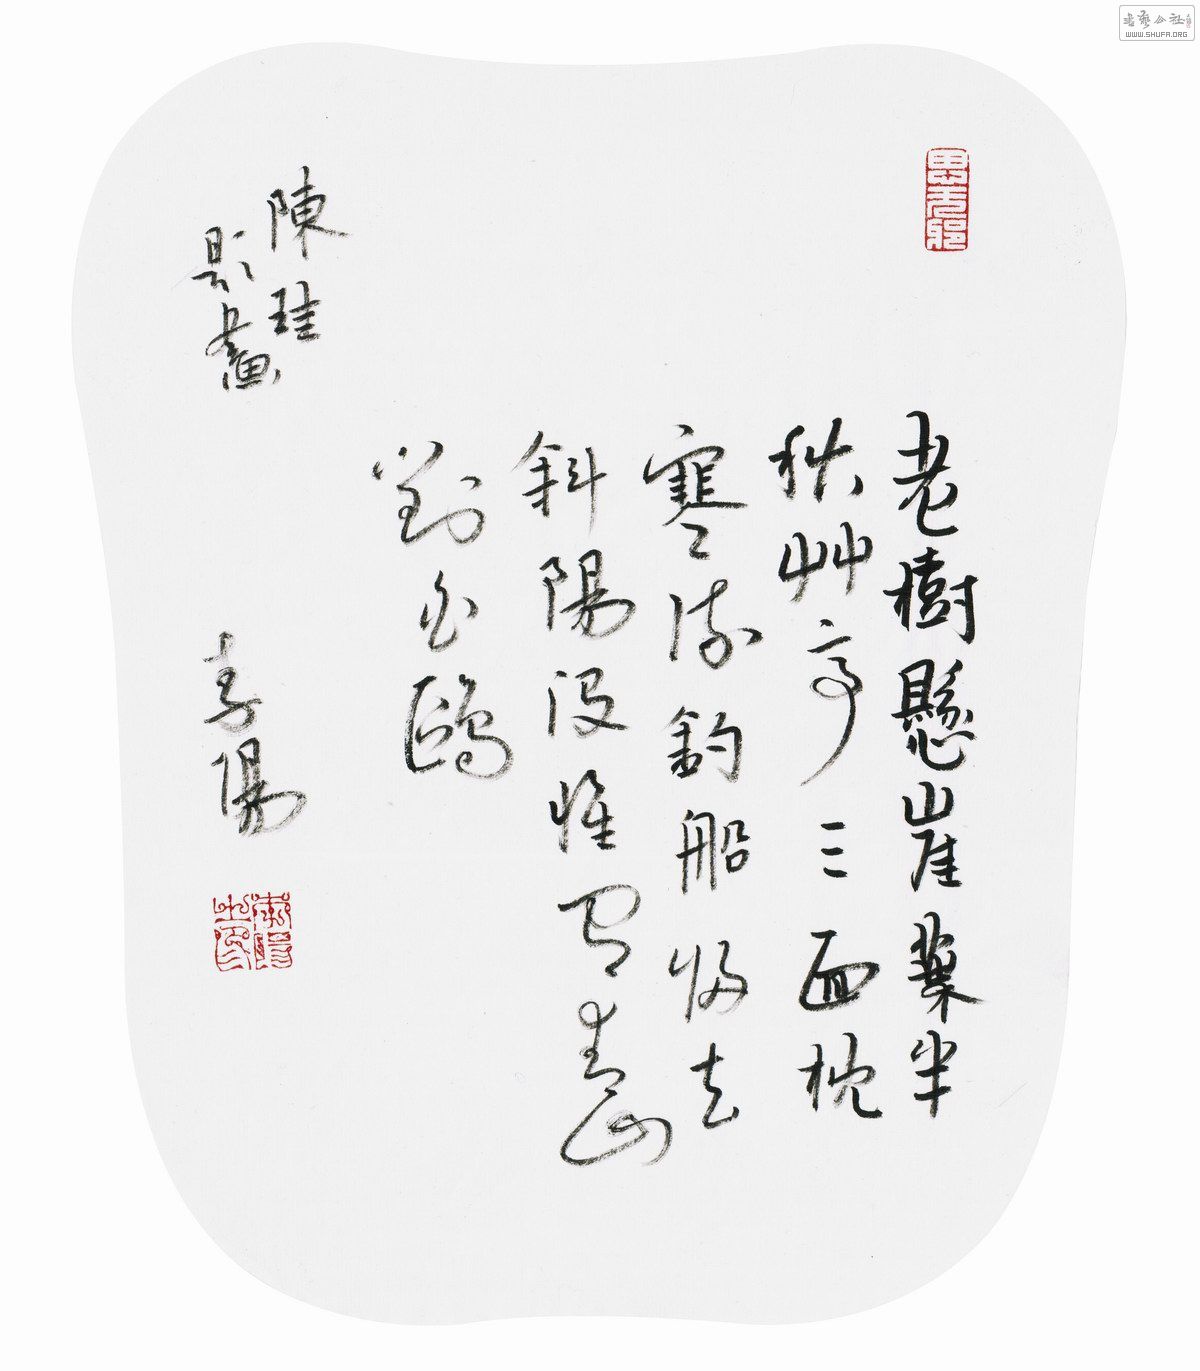 老樹懸崖葉半
秋艸亭三面枕
寒流釣船歸去
斜陽沒惟有青山
對白鷗
陳珪
題畫
陽
書藝公社
WWW.SHUFA.ORG